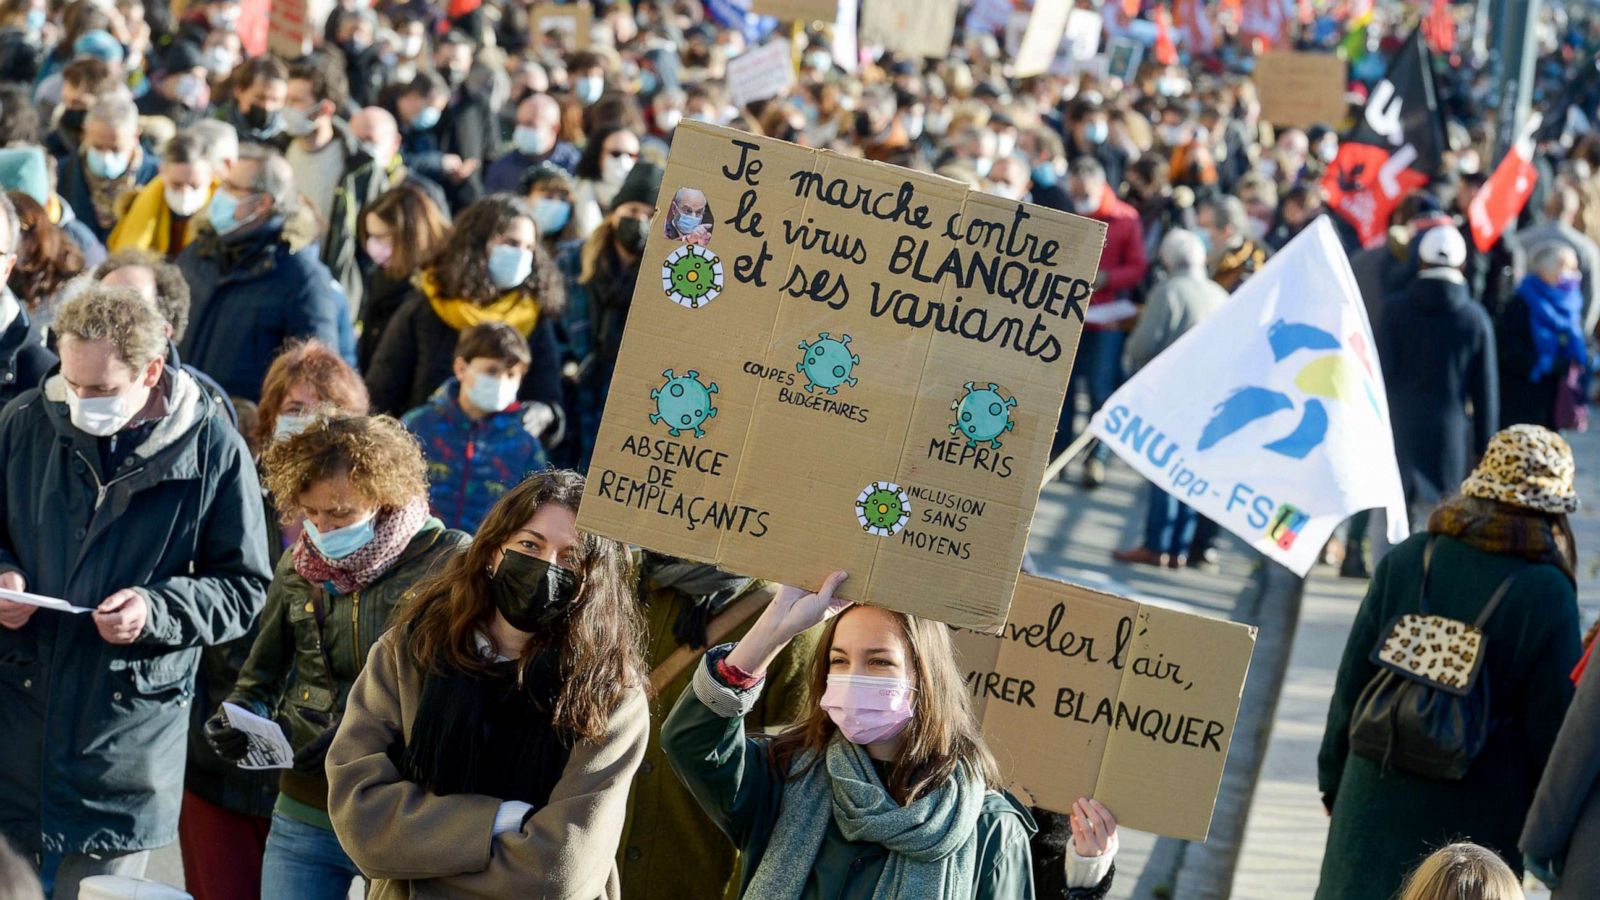 Je marche contre
le virus BLANQUER
et ses variants
COUPES
BUDGÉTAIRES
ABSENCE
DE
REMPLAÇANTS
MÉPRIS
INCLUSION
SANS
MOYENS
l'air,
VIRER BLANQUER
SNUipp-FSU